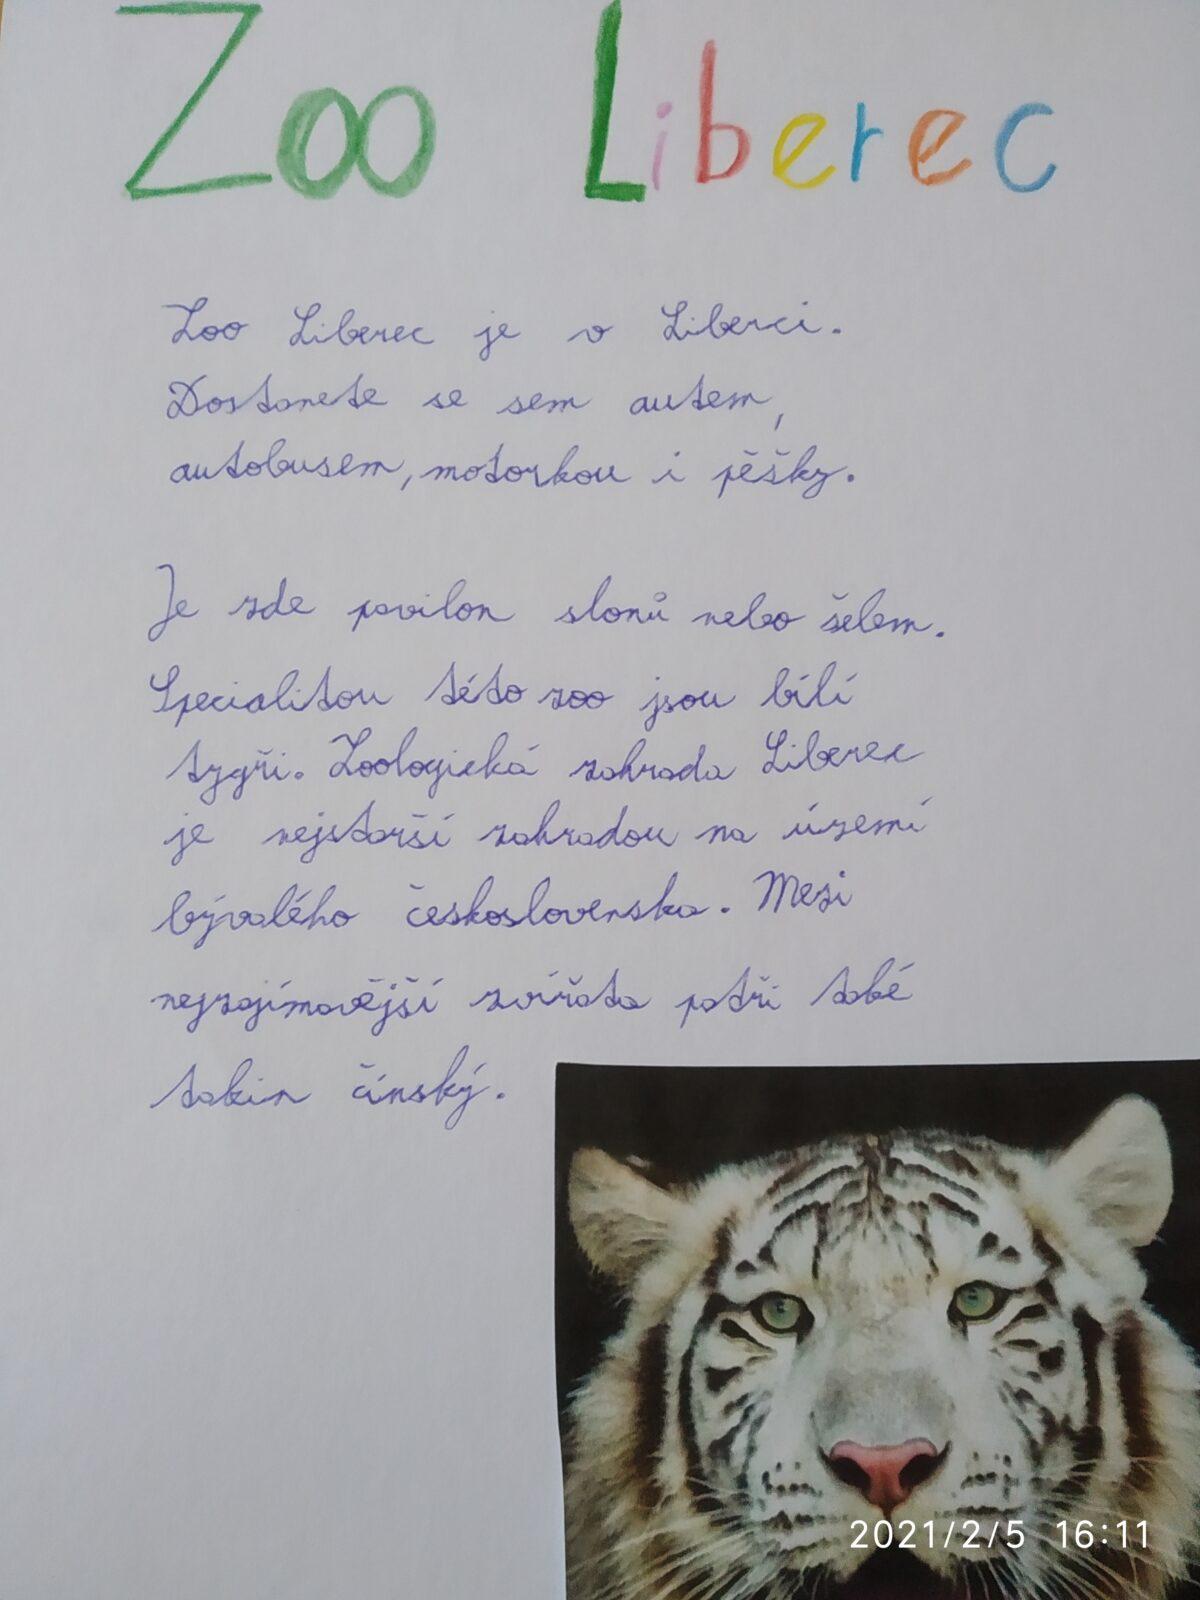 Zoo Liberec
Zoo Liberec je v Liberci.
Dostanete se sem autem,
autobusem, motorkou i pěšky.
Je zde pavilon slonů nebo šelem.
Specialitou této zoo jsou bílí
tygři. Zoologická zahrada Liberec
je nejstarší zahradou na území
bývalého československa. Mezi
nejzajímavější zvířata patři také
takin čínský.
2021/2/5 16:11